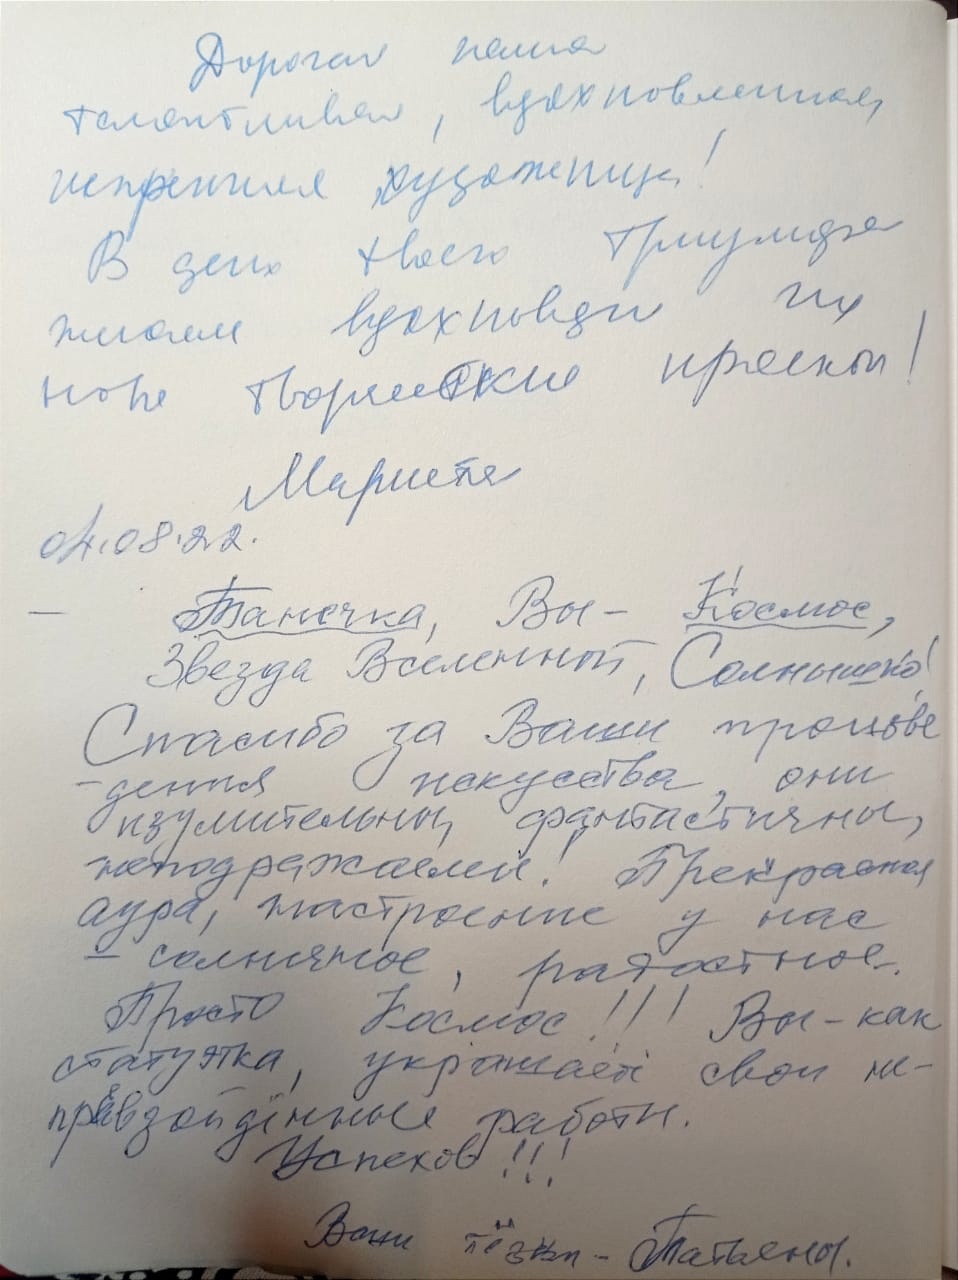 Дорогая наша
талантливая, вдохновленная,
искренняя художница!
В день твоего триумфа
желаем вдохновения на
новые творческие краски!
Мариета
04.08.22.
— Танечка, Вы – Космос,
Звезда Вселенной, Солнышко!
Спасибо за Ваши произве
-дения искусства, они
изумительны, фантастичны,
неподражаемы! Прекрасная
аура, настроение у нас
– солнечное, радостное.
Просто Космос!!! Вы – как
статуэтка, украшаете свои не-
превзойдённые работы.
Успехов!!!
Ваши тёзки – Татьяны.